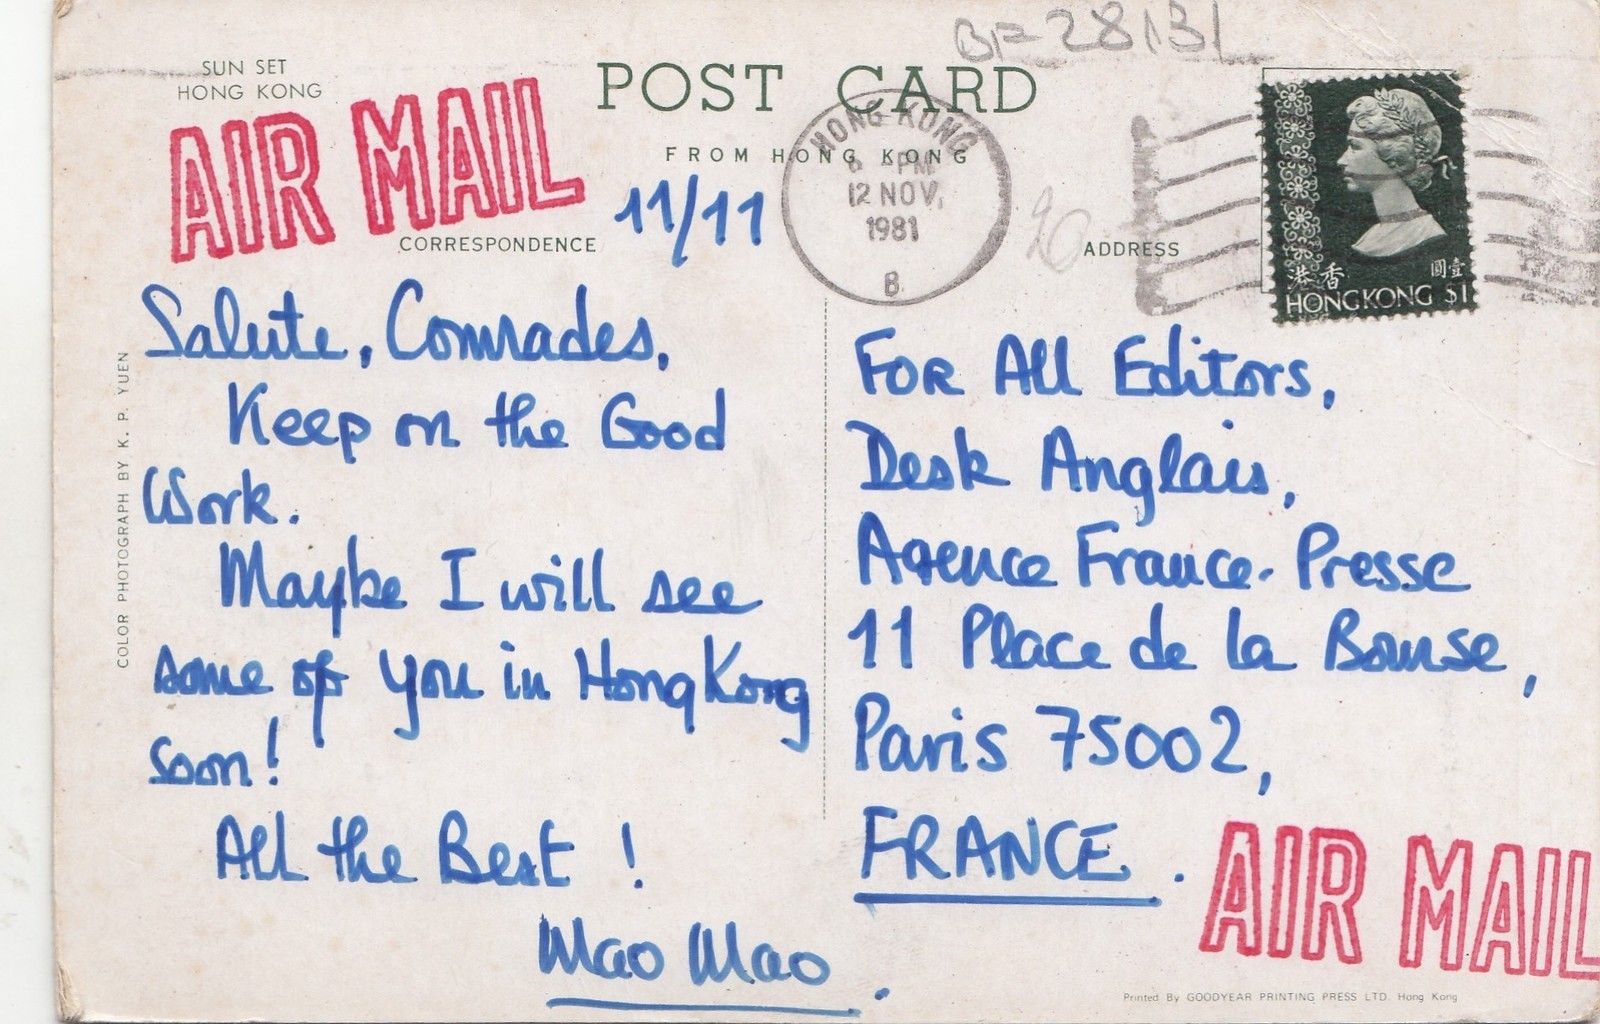 BF-28131
SUN SET
HONG KONG
AIR MAIL
POST CARD
FROM HONG KONG
HONG KONG
6 PM
12 NOV.
1981
B
香港
壹圓
HONG KONG $1
CORRESPONDENCE
11/11
ADDRESS
Salute, Comrades,
Keep on the Good
Work.
Maybe I will see
some of you in Hong Kong
soon!
All the Best !
Mao Mao.
FOR All Editors,
Desk Anglais,
Agence France-Presse
11 Place de la Bourse,
Paris 75002,
FRANCE.
AIR MAIL
COLOR PHOTOGRAPH BY K. P. YUEN
Printed By GOODYEAR PRINTING PRESS LTD. Hong Kong